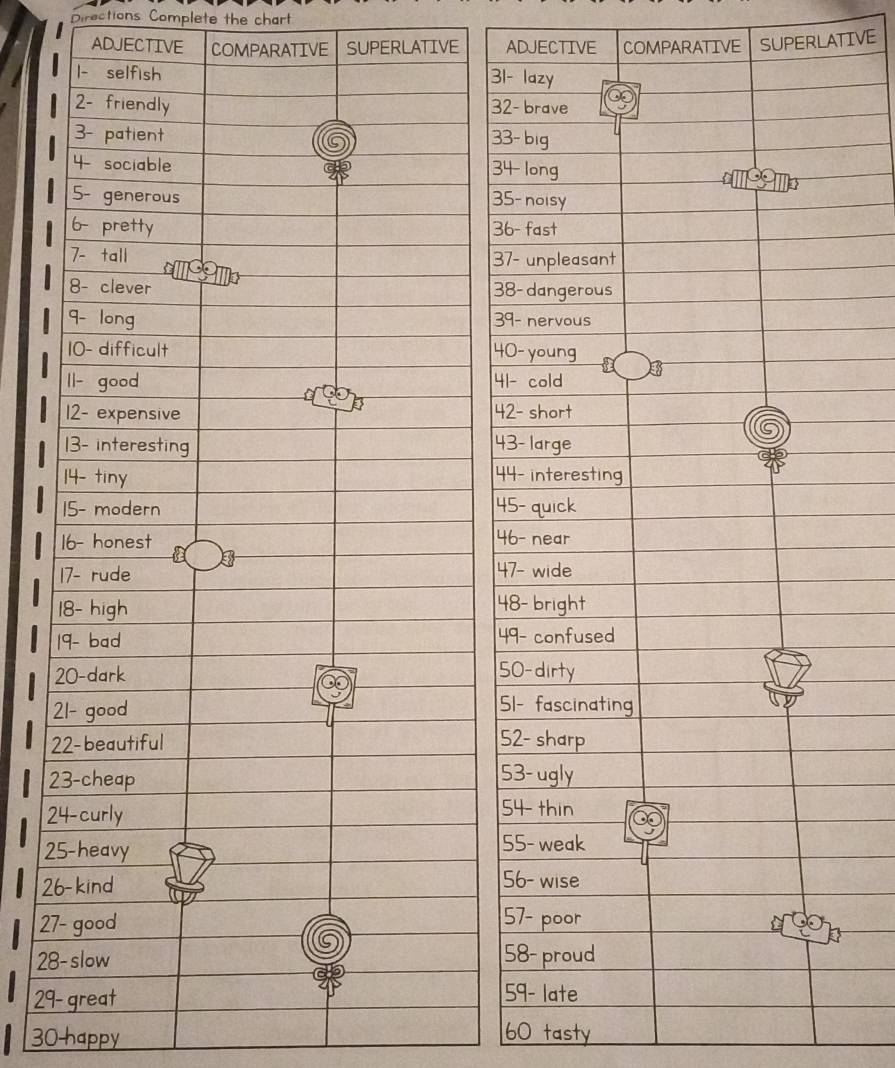 Directions Complete the chart
ADJECTIVE COMPARATIVE SUPERLATIVE
1- selfish
2- friendly
3- patient
4- sociable
5- generous
6- pretty
7- tall
8- clever
9- long
10- difficult
11- good
12- expensive
13- interesting
14- tiny
15- modern
16- honest
17- rude
18- high
19- bad
20-dark
21- good
22-beautiful
23-cheap
24-curly
25-heavy
26-kind
27- good
28-slow
29-great
30-happy
ADJECTIVE COMPARATIVE SUPERLATIVE
31- lazy
32-brave
33-big
34-long
35-noisy
36-fast
37- unpleasant
38-dangerous
39- nervous
40-young
41- cold
42-short
43-large
44-interesting
45-quick
46-near
47-wide
48-bright
49-confused
50-dirty
51- fascinating
52-sharp
53-ugly
54-thin
55-weak
56-wise
57-poor
58-proud
59-late
60 tasty